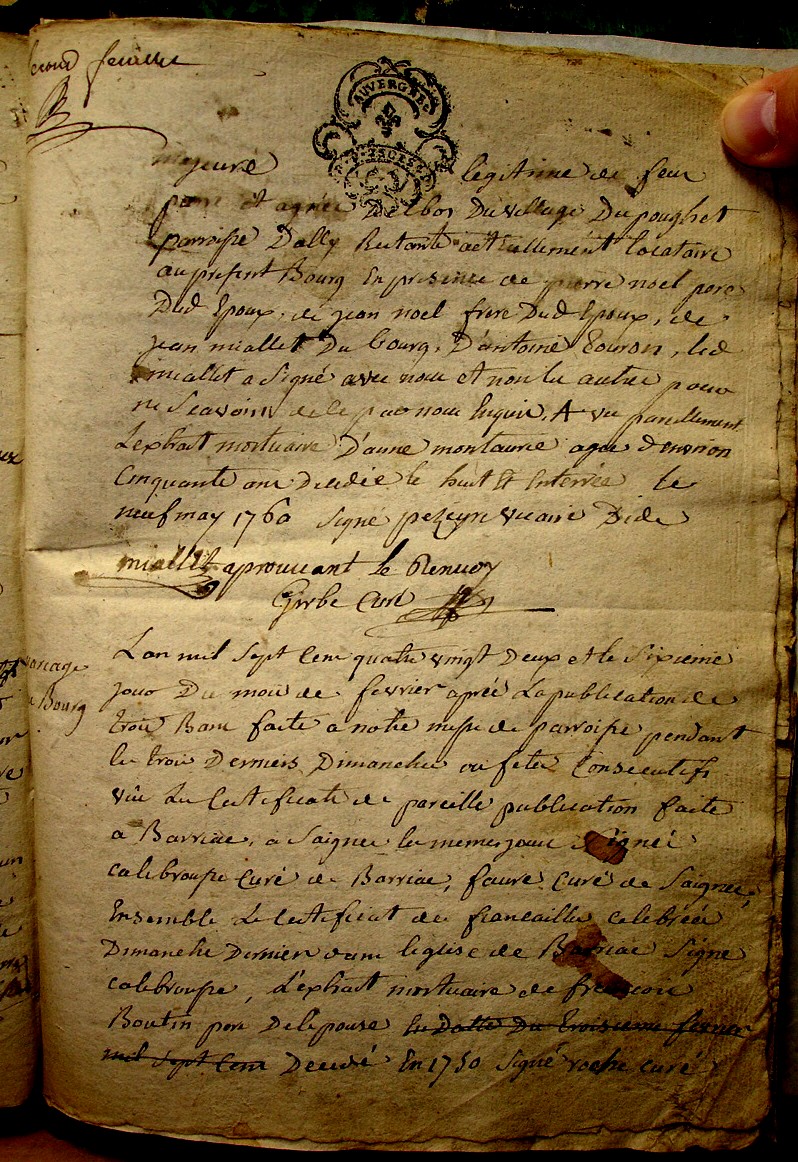 second feuillet
AUVERGNE
majeure légitime de feu
pierre et agnée Delbos Du village Du poughet
parroisse Dally Restante actuellement locataire
au present Bourg En presence de pierre noel pere
Dud Epoux, de jean noel frere Dud Epoux, de
jean miallet Du bourg, D'antoine Couron, led
miallet a Signé avec nous et non les autres pour
ne Scavoir de ce par nous Enquis, A vu pareillement
Lextrait mortuaire D'anne montaurie agée d'environ
Cinquante ans Decedée le huit Et Enterrée le
neuf may 1760 Signé vicaire Dide
miallet aprouvant le Renvoy
Girbe Curé
mariage
Bourg
Lan mil Sept Cens quatre vingt Deux et le Sixieme
jour Du mois de fevrier aprés La publication de
trois Bans faite a notre messe de parroisse pendant
les trois Derniers Dimanches ou fetes Consecutifs
vûs Les Certificats de pareille publication faite
a Barriac, a Saignes les memes jours Signé
calebroupe Curé de Barriac, faure Curé de Saignes,
Ensemble Le Certificat de fiancailles celebrées
Dimanche Dernier dans leglise de Barriac Signé
calebroupe, L'extrait mortuaire de francois
Boutin pere De lepouse en Datte Du troisieme fevrier
mil Sept Cens Decedé En 1750 Signé roche curé